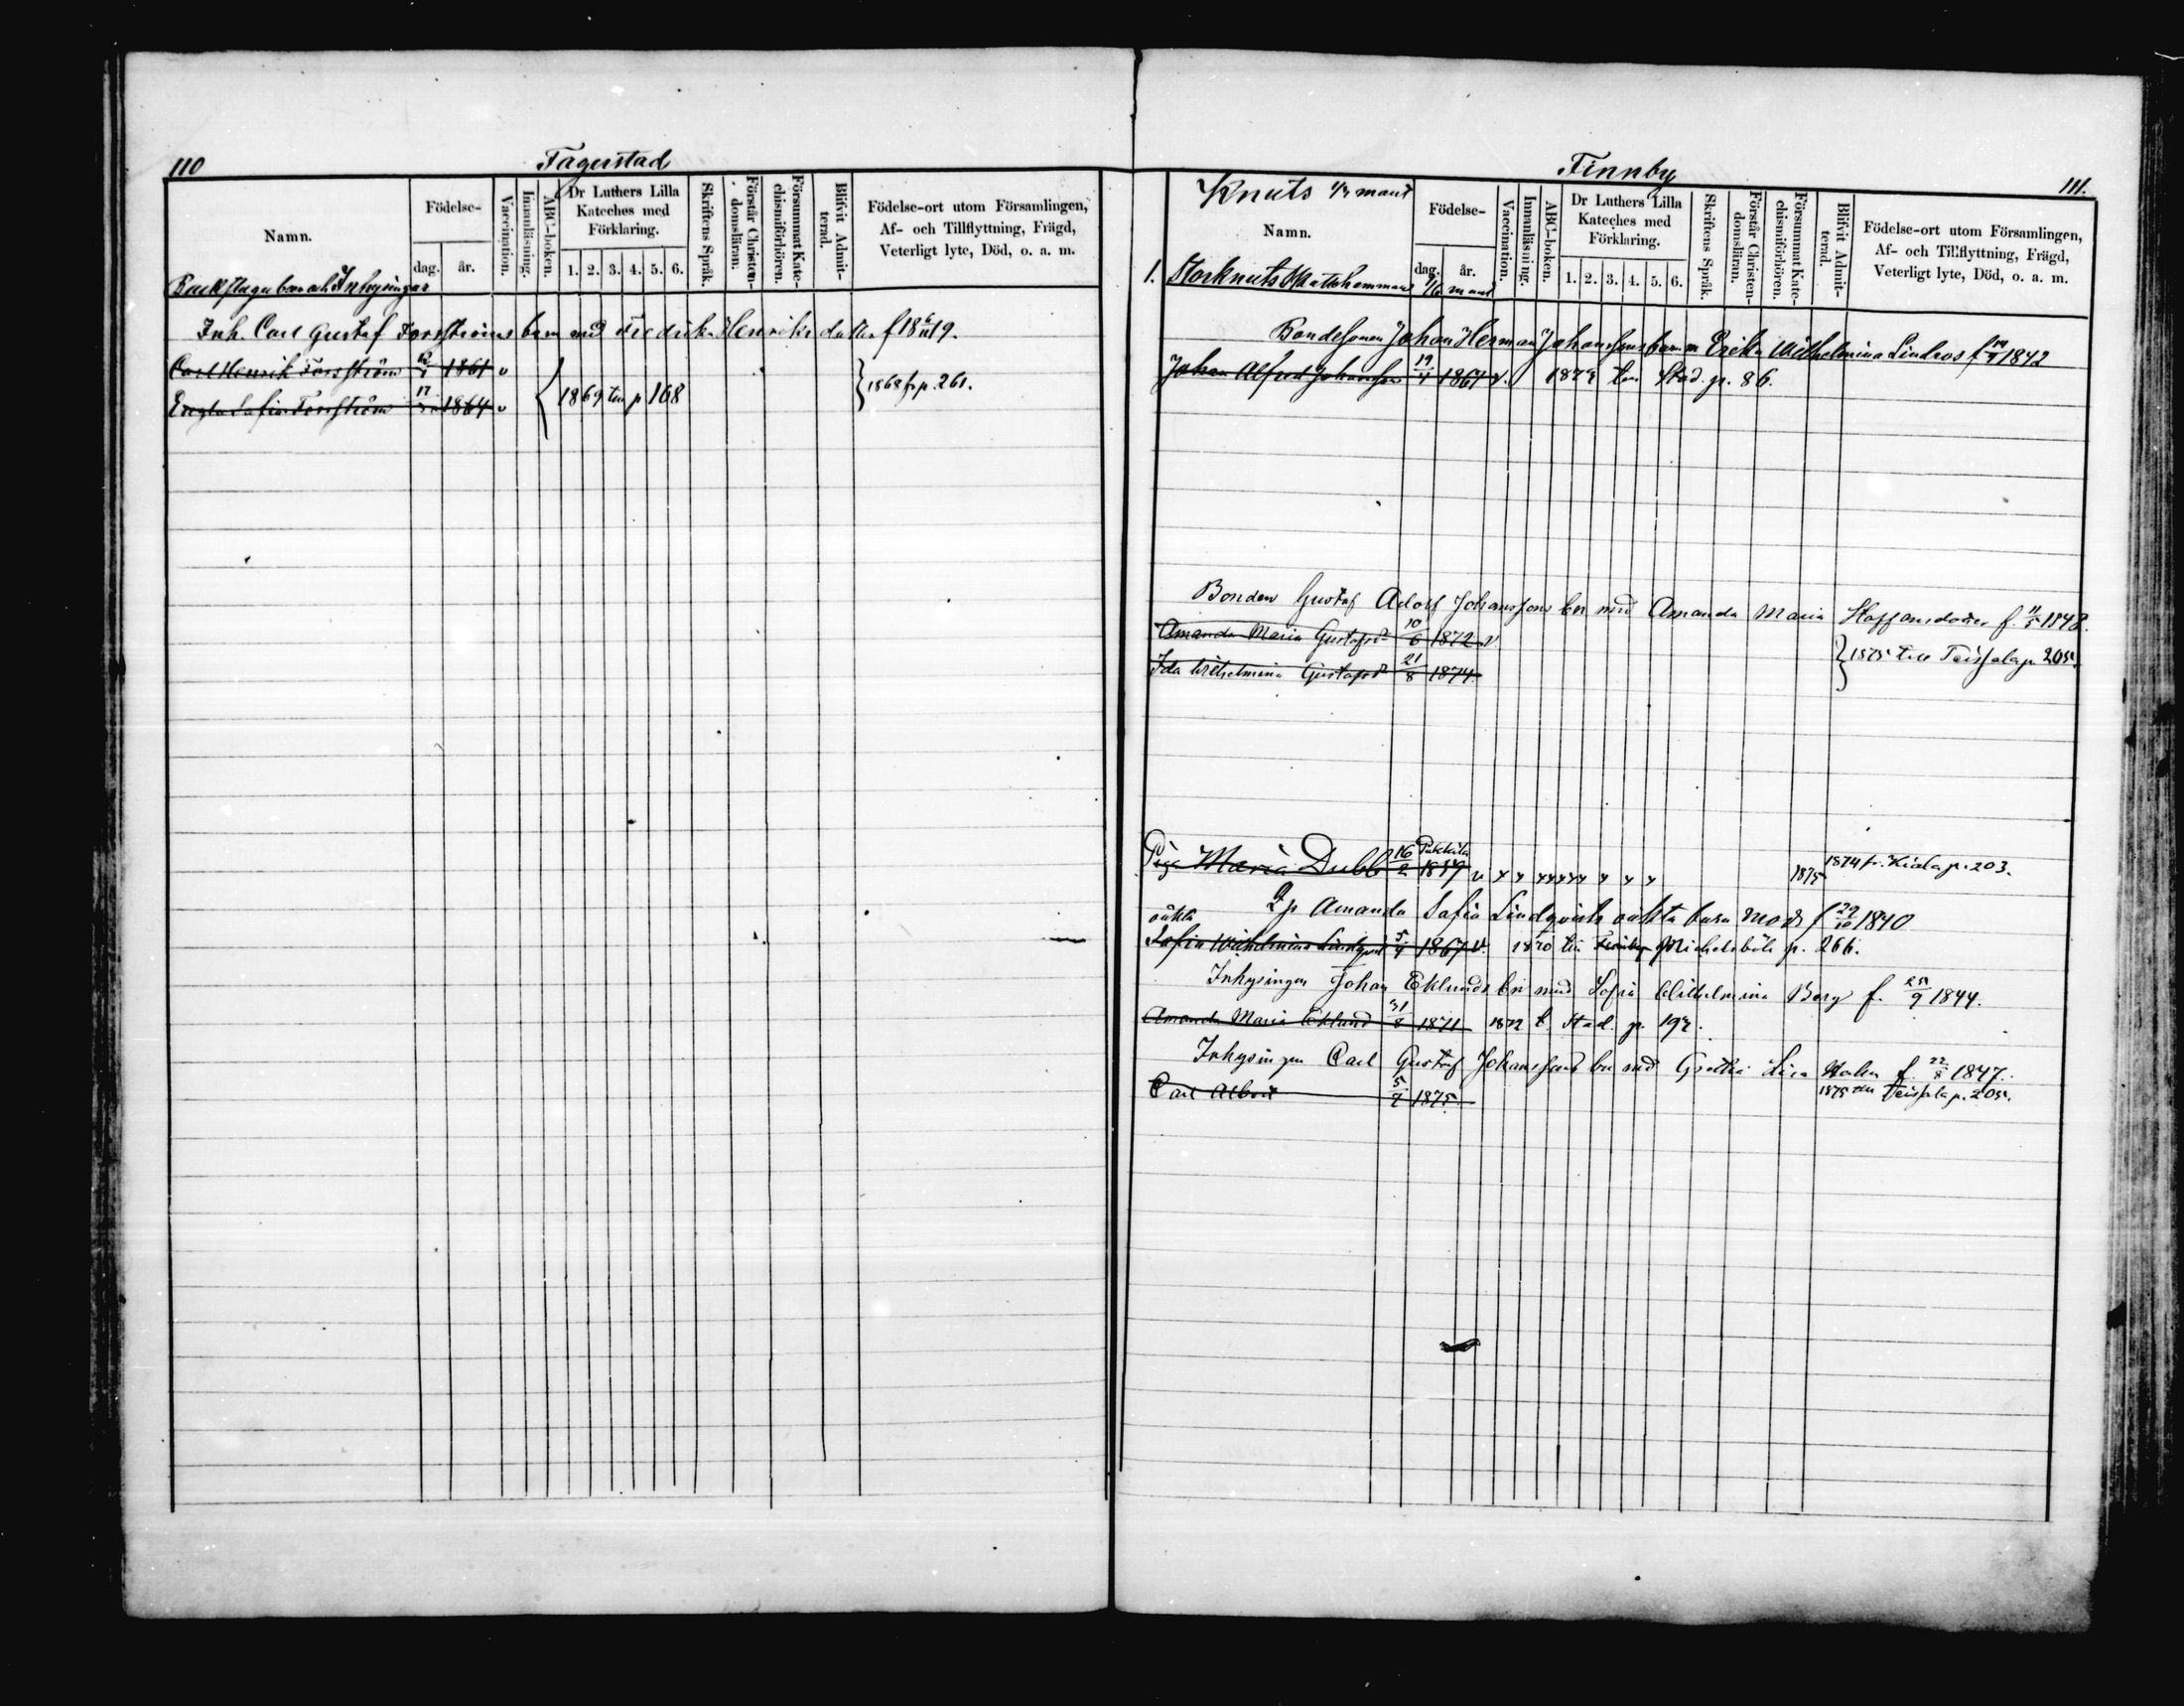 110
Fagerstad
Namn.
Födelse-
dag.
år.
Vaccination.
Innanläsning.
ABC-boken.
Dr Luthers Lilla
Kateches med
Förklaring.
1. 2. 3. 4. 5. 6.
Skriftens Språk.
Förstår Christen-
domsläran.
Försummat Kate-
chismiförhören.
Blifvit Admit-
terad.
Födelse-ort utom Församlingen,
Af- och Tillflyttning, Frägd,
Veterligt lyte, Död, o. a. m.
Backstugu barn och Inhysingar
Inh. Carl Gustaf Forsströms barn med Fredrika Henriks dotter f 18 6/11 19.
Carl Henrik Forsström 1861 v
Engla Sofia Forsström 17 1864 v
1869 till p 168
1868 fr p. 261.
Finnby
111.
Knuts 1/2 mant
Namn.
Födelse-
dag.
år.
Vaccination.
Innanläsning.
ABC-boken.
Dr Luthers Lilla
Kateches med
Förklaring.
1. 2. 3. 4. 5. 6.
Skriftens Språk.
Förstår Christen-
domsläran.
Försummat Kate-
chismiförhören.
Blifvit Admit-
terad.
Födelse-ort utom Församlingen,
Af- och Tillflyttning, Frägd,
Veterligt lyte, Död, o. a. m.
1. Storknuts mant
Bondesonen Johan Herman Johanssons barn m Erika Wilhelmina Lindros f 1842
Johan Alfred Johansson 19/4 1867 v. 1872 till Stad. p. 86.
Bonden Gustaf Adolf Johanssons bn med Amanda Maria Staffansdotter f. 11/5 1848.
Amanda Maria Gustafsdr 10/6 1872 v
Ida Wilhelmina Gustafsdr 21/8 1874
1875 till Teissala p. 205.
Pig. Maria Dubb 16/2 Pukkila 1859 v x x x x x x x x x x 1875 1874 fr. Kiala p. 203.
Qp Amanda Sofia Lindqvists oäkta barn mod f 29/10 1840
oäkta
Sofia Wilhelmina Lindqvist 5/4 1867 v. 1870 till Finnby Mickelsböle p. 266.
Inhysingen Johan Eklunds bn med Sofia Wilhelmina Berg f. 25/9 1844.
Amanda Maria Eklund 31/8 1871 1872 t. Stad. p. 192.
Inhysingen Carl Gustaf Johanssons bn med Gretha Lisa Malm f. 22/8 1847.
Carl Albert 5/4 1875
1875 till Teissala p. 205.